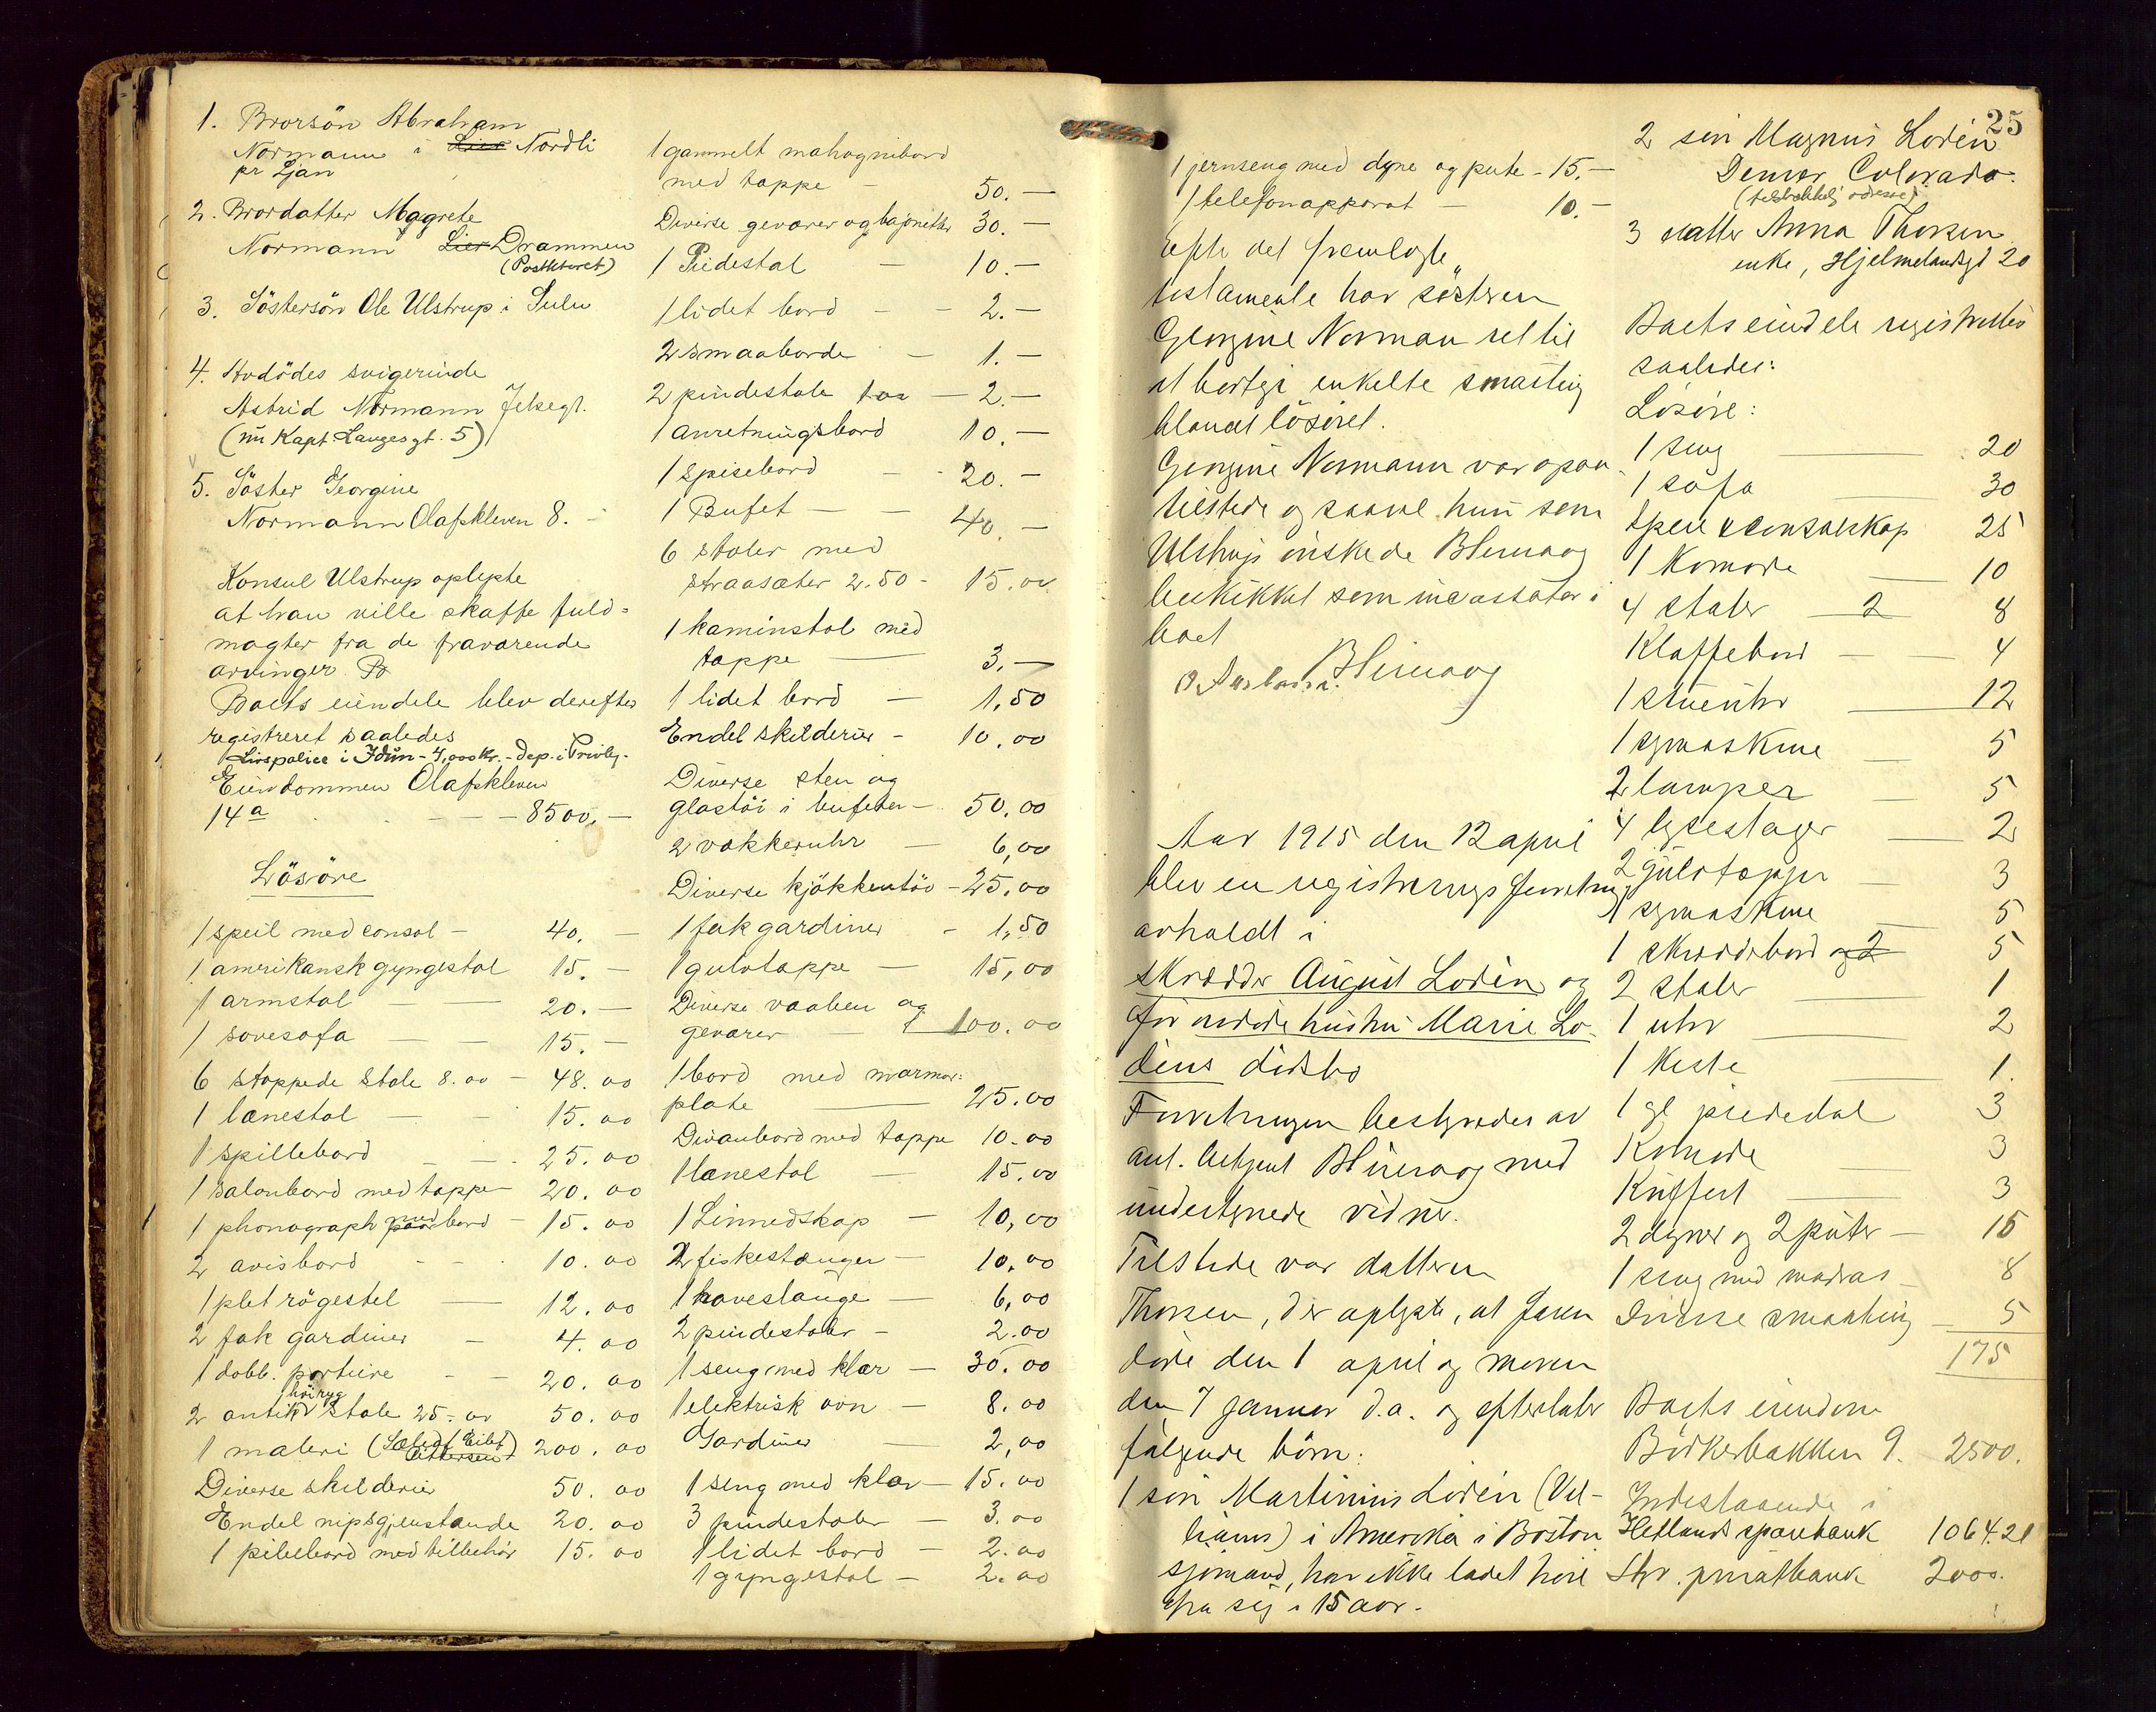 1. Brorsön Abraham
Normann i Lier Nordli
pr Ljan
2. Brordatter Maggrete
Normann Lier Drammen
(Postktoret)
3. Söstersön Ole Ulstrup i Sulu
4. Avdödes svigerinde
Astrid Normann Jelsegt.
(nu Kapt Langes gt. 5)
5. Söster Georgine
Normann Olafskleven 8.
Konsul Ulstrup oplyste
at han ville skaffe fuld-
magter fra de fraværende
arvinger Bo
Boets eiendele blev derefter
registreret saaledes
Livspolice i Idun - 4,000 kr. - dep. i Privbk.
Eiendommen Olafskleven
14a - - - 8500,-
Lösöre
1 speil med consol - 40.-
1 amerikansk gyngestol 15.-
1 armstol - 20.-
1 sovesofa - 15.-
6 stoppede stole 8.00 - 48.00
1 lænestol - 15.00
1 spillebord - 25.00
1 salonbord med tæppe - 20.00
1 phonograph paa med bord - 15.00
2 avisbord - 10.00
1 plet rögestel - 12.00
2 fak gardiner - 4.00
1 dobb. portiere - 20.00
2 antik höirygg stole 25.00 50.00
1 maleri (Solnedg Eilef Pettersen) 200.00
Diverse skilderier 50.00
Endel nipsgjenstande 20.00
1 pibebord med tilbehör 15.00
1 gammelt mahognibord
med tæppe - 50.-
Diverse geværer og bajonetter 30.-
1 Piedestal - 10.-
1 lidet bord - 2.-
2 smaaborde - 1.-
2 pindestole - 2.-
1 anretningsbord 10.-
1 spisebord - 20.-
1 Bufet - 40.-
6 stoler med
straasæter 2.50 - 15.00
1 kaminstol med
tæppe - 3.-
1 lidet bord - 1,50
Endel skilderier - 10.00
Diverse sten og
glastöi i bufeten - 50,00
2 vækkeruhr - 6,00
Diverse kjökkentöi - 25,00
1 fak gardiner - 1,50
1 gulvtæppe - 15,00
Diverse vaaben og
geværer - 100.00
1 bord med marmor:
plate - 25.00
Divanbord med tæppe 10.00
1 lænestol - 15.00
1 Linnedskap - 10,00
2 fiskestænger - 10,00
1 haveslange - 6,00
2 pindestoler - 2.00
1 seng med klær - 30.00
1 elektrisk ovn - 8.00
Gardiner - 2,00
1 seng med klær - 15.00
3 pindestoler - 3.00
1 lidet bord - 2.00
1 gyngestol - 2.00
25
1 jernseng med dyne og pute - 15.-
1 telefonapparat - 10.-
efter det fremlagte
testamente har søsteren
Georgine Norman ret til
at bortgi enkelte smaating
blandt lösöret.
Georgine Normann var ogsaa
tilstede og saavel hun som
Ulstrup önskede Blimaag
beskikket som incassator i
boet
Blimaag
Aar 1915 den 12 april
blev en registreringsforretning
avholdt i
skrædder August Lodén og
för avdöde hustru Marie Lo-
déns dödsbo
Forretningen bestyredes av
aut. betjent Blimaag med
undertegnede vidner.
Tilstede var datteren
Thorsen, der oplyste, at faren
døde den 1 april og moren
den 7 januar d.a. og efterlater
følgende börn:
1 sön Martinius Lodén (Vil-
liams) i Amerika i Boston
sjömand, har ikke ladet höre
fra sig i 15 aar.
2 sön Magnus Lodén
Denver Colorado.
(tilstrækkelig adresse)
3 datter Anna Thorsen
enke, Hjelmelandsgt 20
Boets eiendele registrertes
saaledes:
Løsöre:
1 seng - 20
1 sofa - 30
Speil & consolskap 25
1 Komode - 10
4 stoler - 2 8
Klaffebord - 4
1 stueuhr - 12
1 symaskine 5
2 lamper - 5
4 lysestager - 2
2 gulvtæpper - 3
1 symaskine - 5
1 skrædderbord og 2 5
2 stoler - 1
1 uhr - 2
1 kiste - 1.
1 gl piedestal 3
Komode - 3
Kuffert - 3
2 dyner og 2 puter - 15
1 seng med madras - 8
Diverse smaating - 5
175
Boets eiendom
Börkebakken 9. 2500.
Indestaaende i
Hetlands sparebank 1064.21
Stv. privatbank 2000.